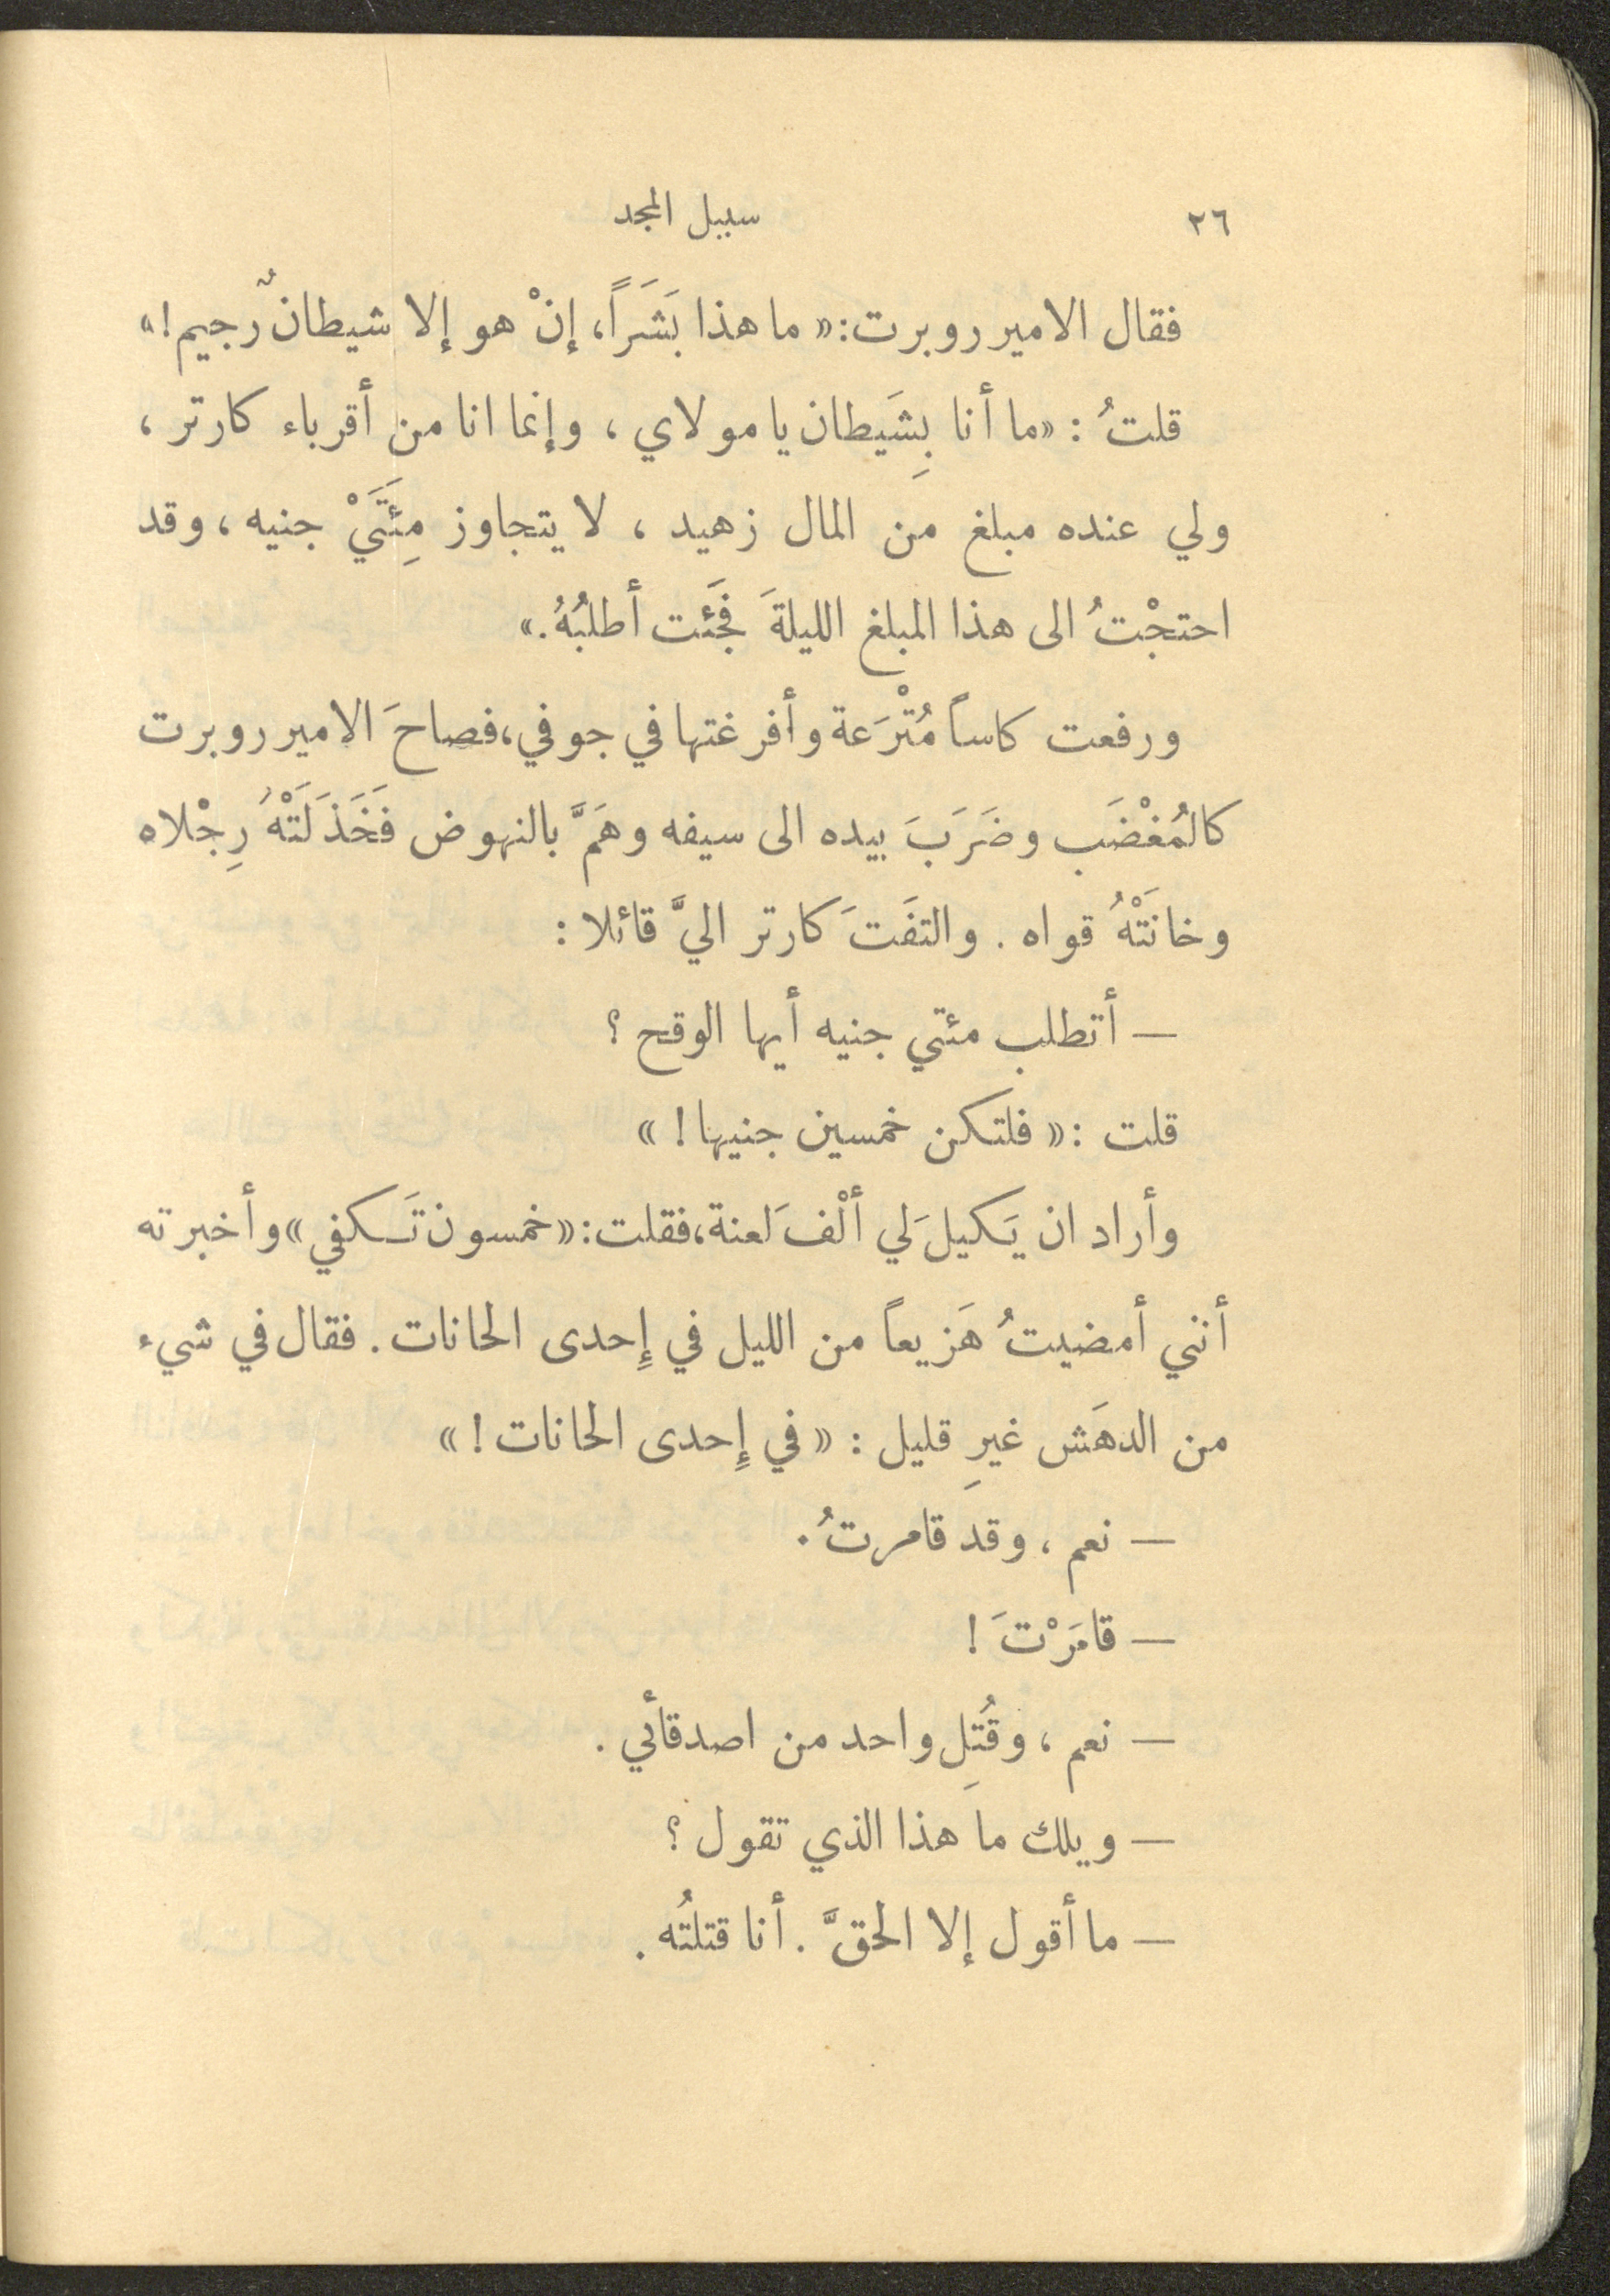 ٢٦ سبيل المجد
فقال الامير روبرت: «ما هذا بَشَرَاً، إنْ هو إلا شيطانٌ رجيم!»
قلتُ : «ما أنا بِشَيطان يا مولاي ، وإنما انا من أقرباء كارتر ،
ولي عنده مبلغ من المال زهيد ، لا يتجاوز مِئَتَيْ جنيه ، وقد
احتجْتُ الى هذا المبلغ الليلةَ فَجَئت أطلبُهُ.»
ورفعت كاساً مُتْرَعة وأفرغتها في جوفي،فصاحَ الامير روبرت
كالمُغْضَب وضَرَبَ بيده الى سيفه وهَمَّ بالنهوض فَخَذَلَتْهُ رِجْلاه
وخانَتْهُ قواه . والتفَتَ كارتر اليَّ قائلا :
— أتطلب مئتي جنيه أيها الوقح ؟
قلت : «فلتكن خمسين جنيها ! »
وأراد ان يَكيلَ لي ألْفَ لعنة،فقلت: «خمسون تَكفي» وأخبرته
أنني أمضيتُ هَزيعاً من الليل في إِحدى الحانات . فقال في شيء
من الدهَش غيرِ قليل : « في إِحدى الحانات ! »
— نعم ، وقد قامرتُ .
— قامَرْتَ !
— نعم ، وقُتِل واحد من اصدقائي .
— ويلك ما هذا الذي تقول ؟
— ما أقول إلا الحقَّ . أنا قتلتُه .